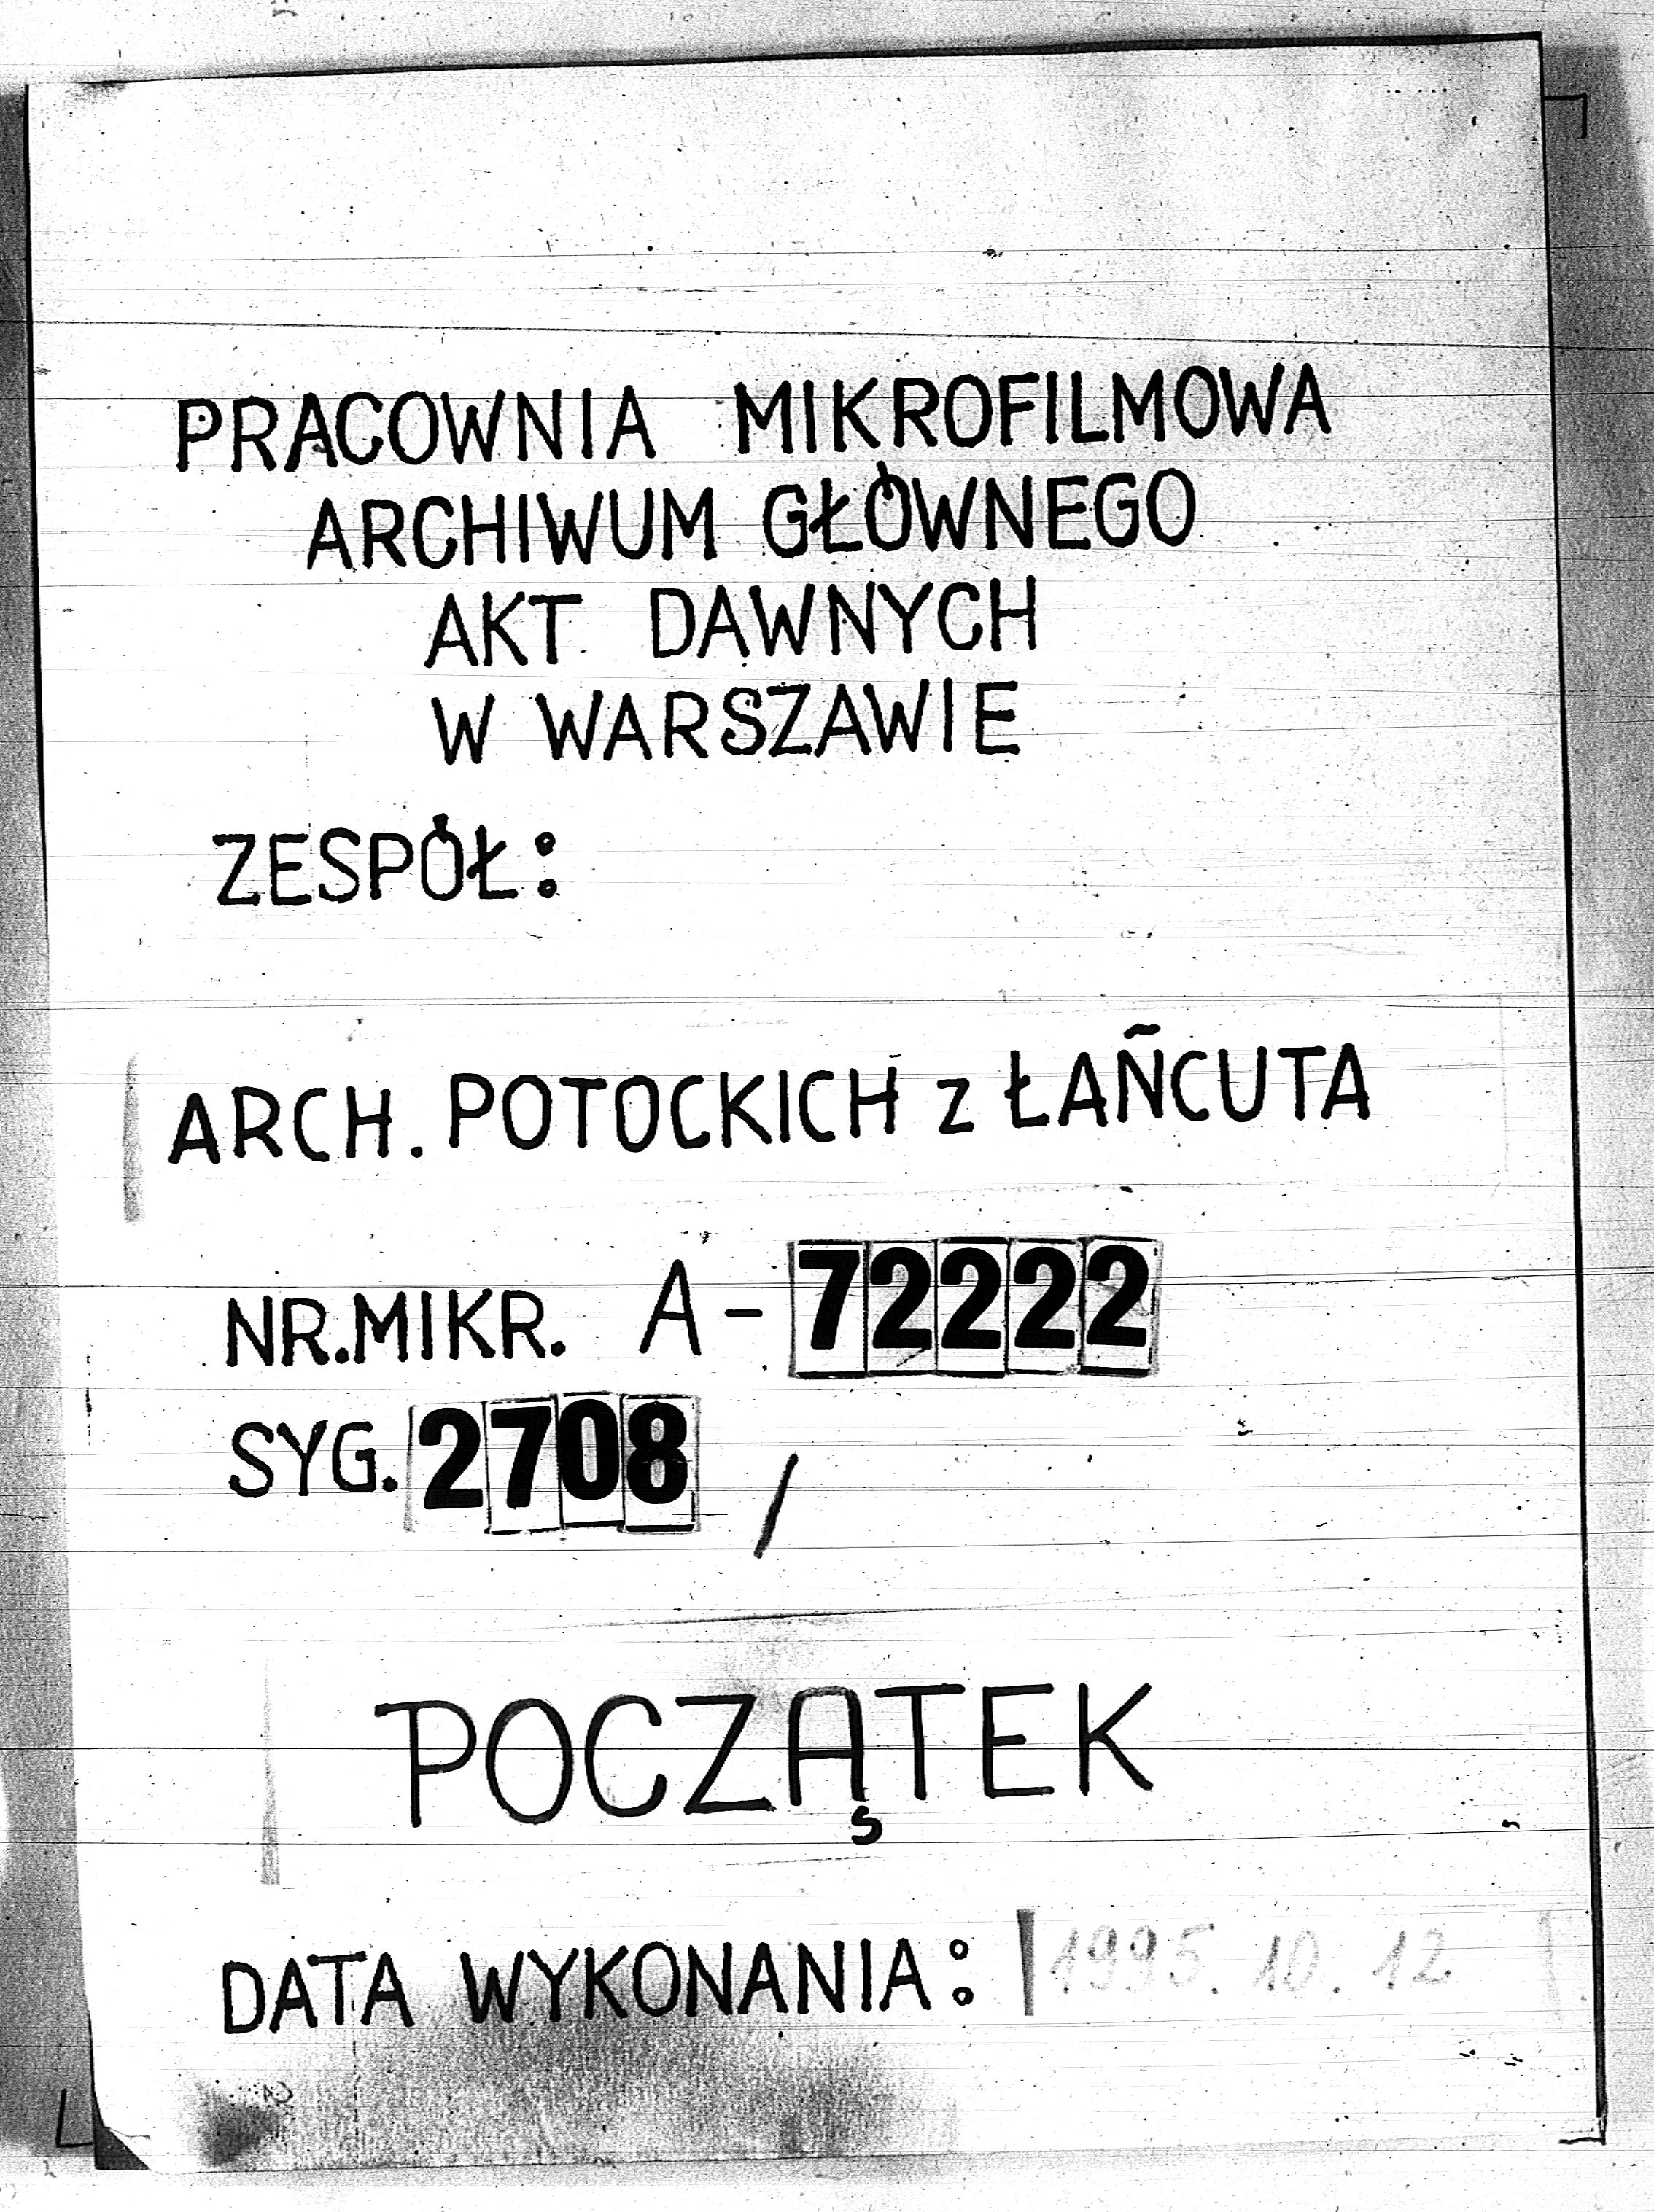 PRACOWNIA MIKROFILMOWA
ARCHIWUM GŁÓWNEGO
AKT DAWNYCH
W WARSZAWIE
ZESPÓŁ:
ARCH. POTOCKICH z ŁAŃCUTA
NR.MIKR. A-72222
SYG. 2708 /
POCZĄTEK
DATA WYKONANIA: 1995.10.12